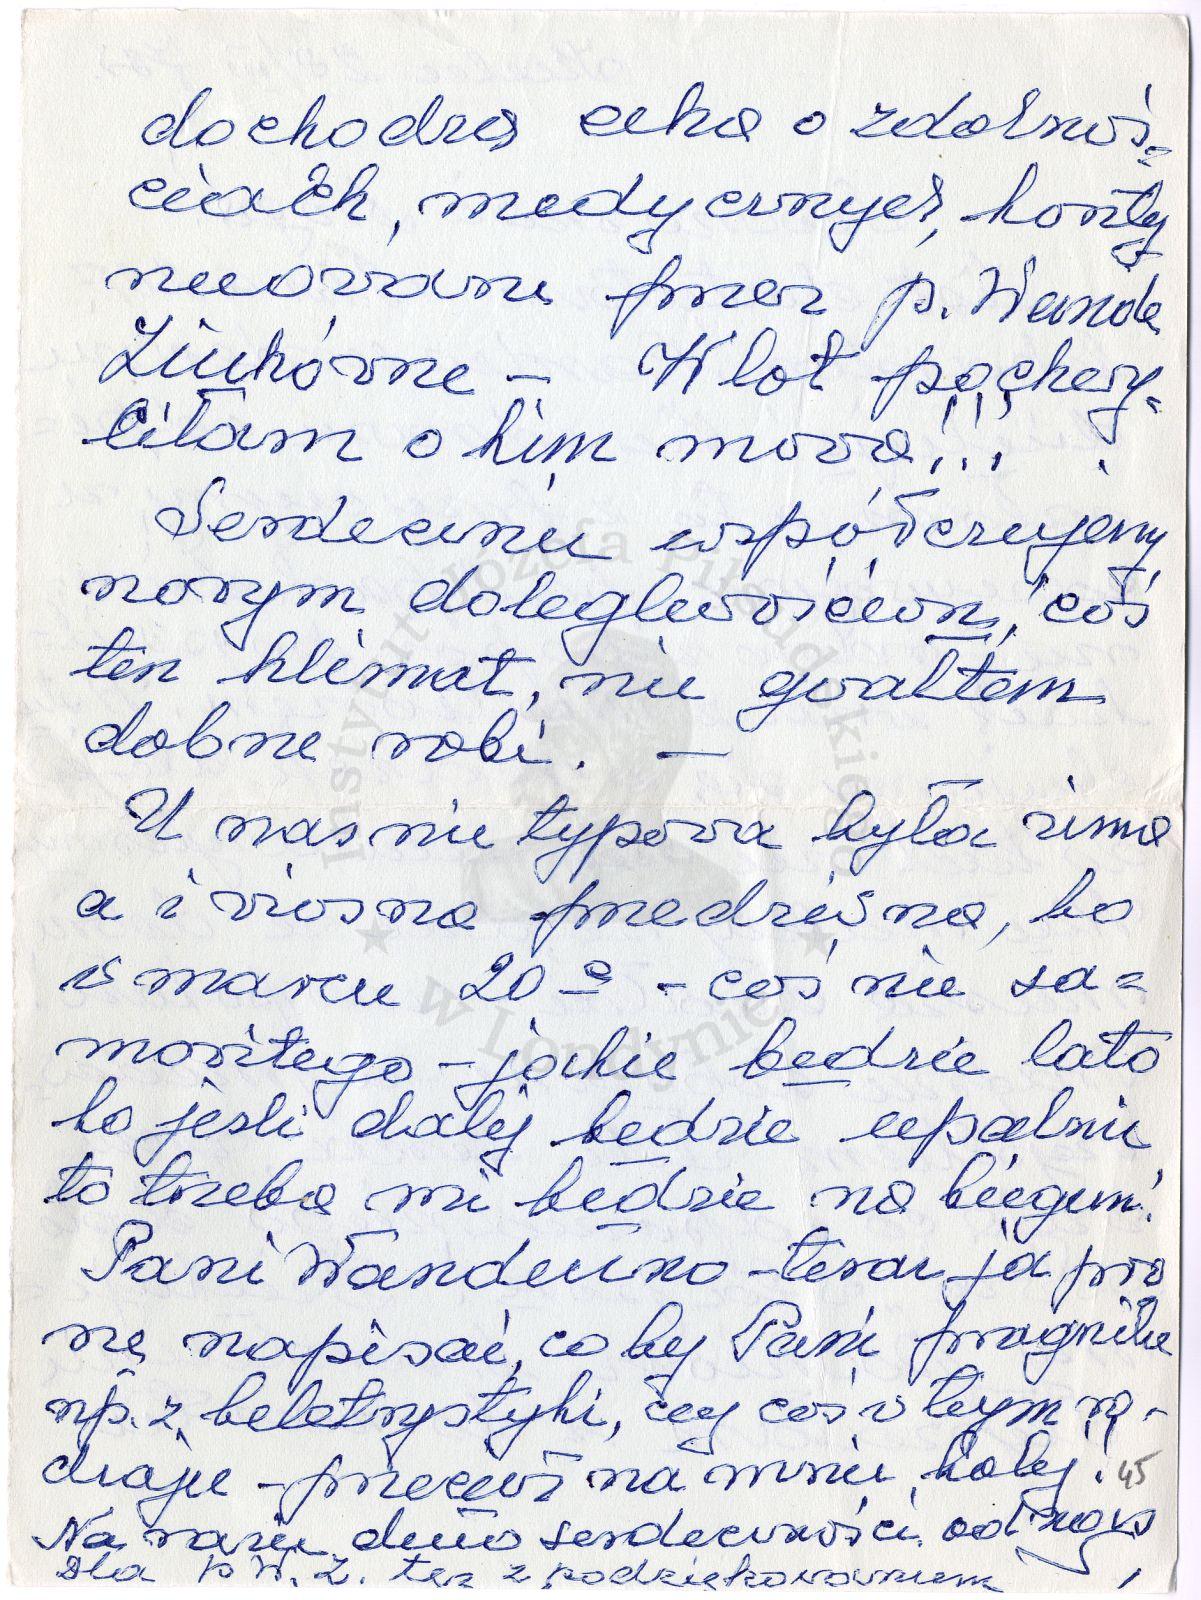 dochodzą echa o zdolnoś=
ciach, medycznych, konty
nuowane przez p. Wandę
Ziukównę – W lot pochwy=
ciłam o kim mowa!!!
Serdecznie współczujemy
nowym dolegliwościom, coś
ten klimat, nie gwałtem
dobrze robi. –
U nas nie typowa była zima
a i wiosna przedziwna, bo
w marcu 20° – coś nie sa=
mowitego – jakie będzie lato
bo jeśli dalej będzie upalnie
to trzeba mi będzie na biegun!
Pani Wandeńko – teraz ja pro
szę napisać, co by Pani pragnęła
np. z beletrystyki, czy coś w tym ro-
dzaju – przecież na mnie kolej!
45
Na razie dużo serdeczności od nas
Dla p W. Z. też z podziękowaniem
Instytut Józefa Piłsudskiego
w Londynie